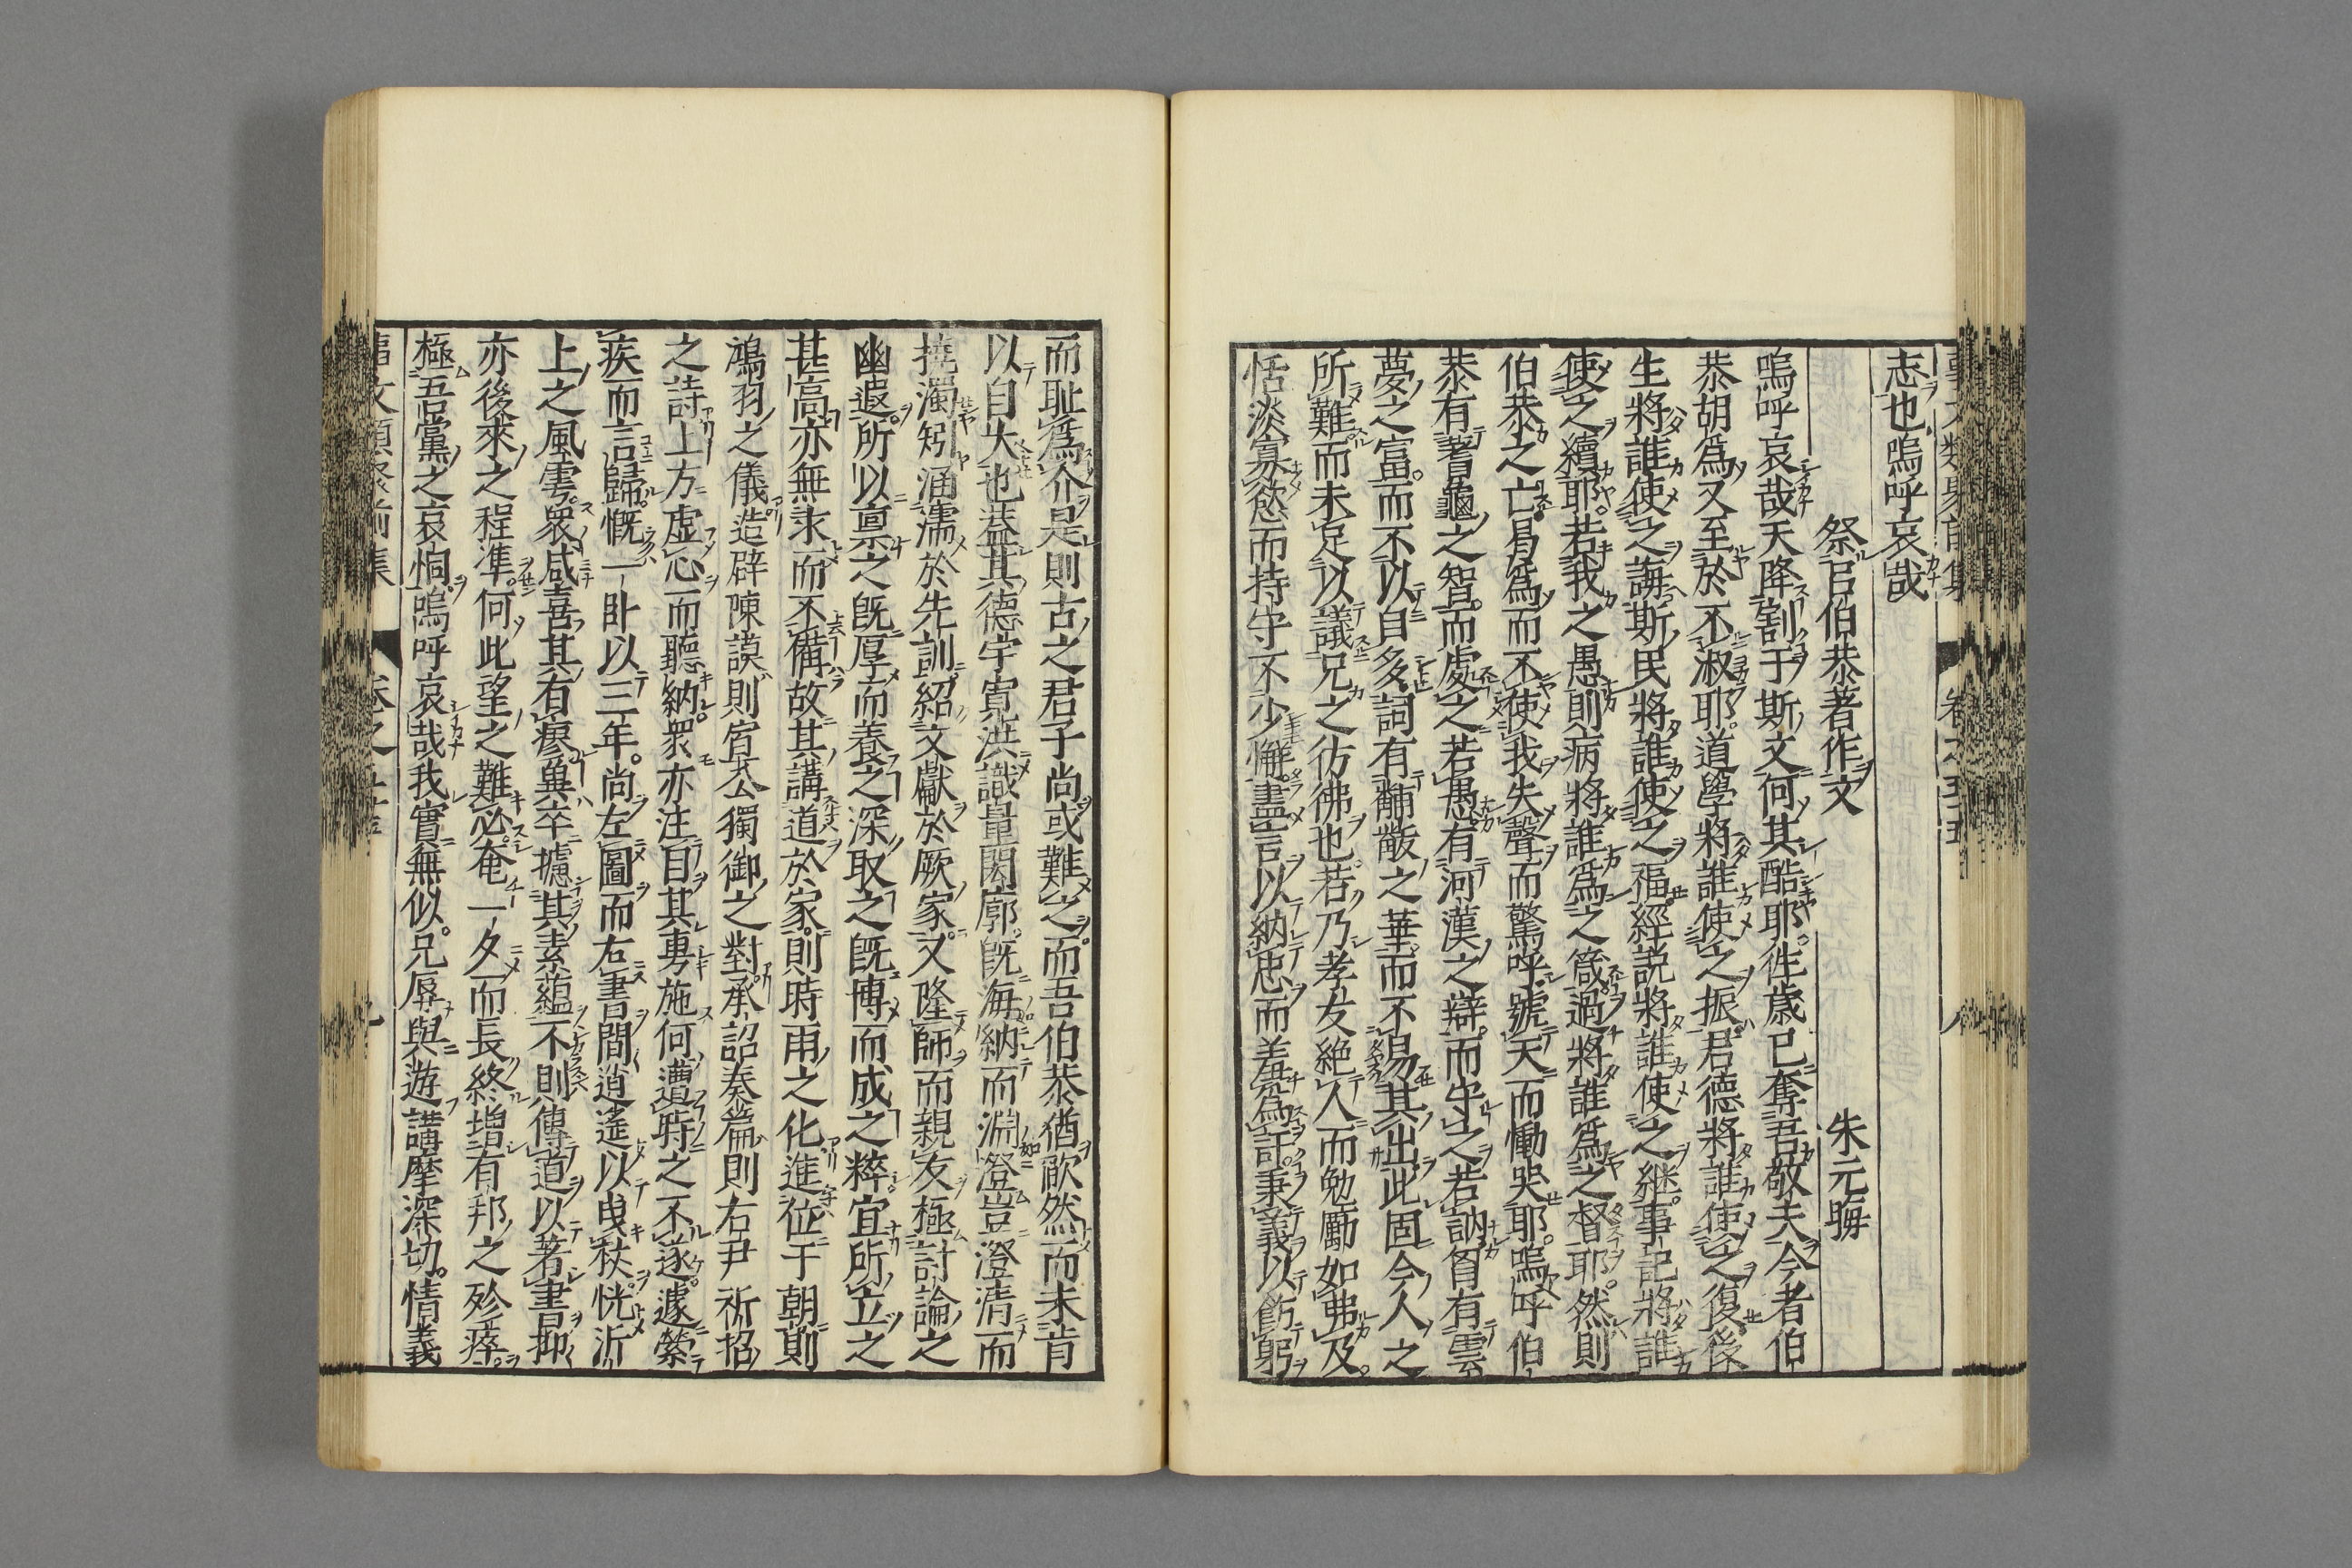 志也嗚呼哀哉
祭呂伯恭著作文
朱元晦
嗚呼哀哉天降割于斯文何其酷耶徃歲已奪吾敬夫今者伯
恭胡為又至於不淑耶道學將誰使之振君德將誰使之復後
生將誰使之誨斯民將誰使之福經說將誰使之継事記將誰
使之續耶若我之愚則病將誰為之箴過將誰為之督耶然則
伯恭之亡曷為而不使我失聲而驚呼號天而慟哭耶嗚呼伯
恭有蓍龜之智而處之若愚有河漢之辯而守之若訥胷有雲
夢之富而不以自多詞有黼黻之華而不易其出此固今人之
所難而未足以議兄之彷彿也若乃孝友絕人而勉勵如弗及
恬淡寡慾而持守不少懈盡言以納忠而羞為訐秉義以飭躬
而耻為介是則古之君子尚或難之而吾伯恭猶歉然而未肯
以自大也蓋其德宇寬洪識量閎廓旣海納而淵澄豈澄清而
撓濁矧涵濡於先訓紹文獻於厥家又隆師而親友極討論之
幽遐所以稟之旣厚而養之深取之旣博而成之粹宜所立之
甚高亦無求而不備故其講道於家則時雨之化進位于朝則
鴻羽之儀造辟陳謨則宣公獨御之對承詔奏篇則右尹祈招
之詩上方虛心而聽納眾亦注目其旉施何遭時之不遂遽縈
疾而言歸慨一卧以三年尚左圖而右書間逍遙以曳杖恍沂
上之風雩衆咸喜其有瘳兾卒攄其素蘊不則傳道以著書抑
亦後來之程準何此望之難必奄一夕而長終增有邦之殄瘁
極吾黨之哀恫嗚呼哀哉我實無似兄辱與遊講摩深切情義